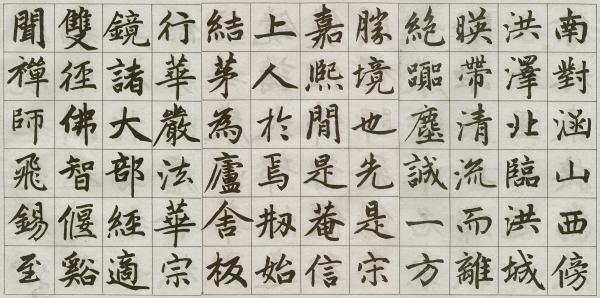 南對涵山西傍
洪澤北臨洪城
暎帶清流而離
絶躧塵誠一方
勝境也先是宋
嘉熙間是菴信
上人於焉刱始
結茅為廬舍板
行華嚴法華宗
鏡諸大部經適
雙徑佛智偃谿
聞禪師飛錫至